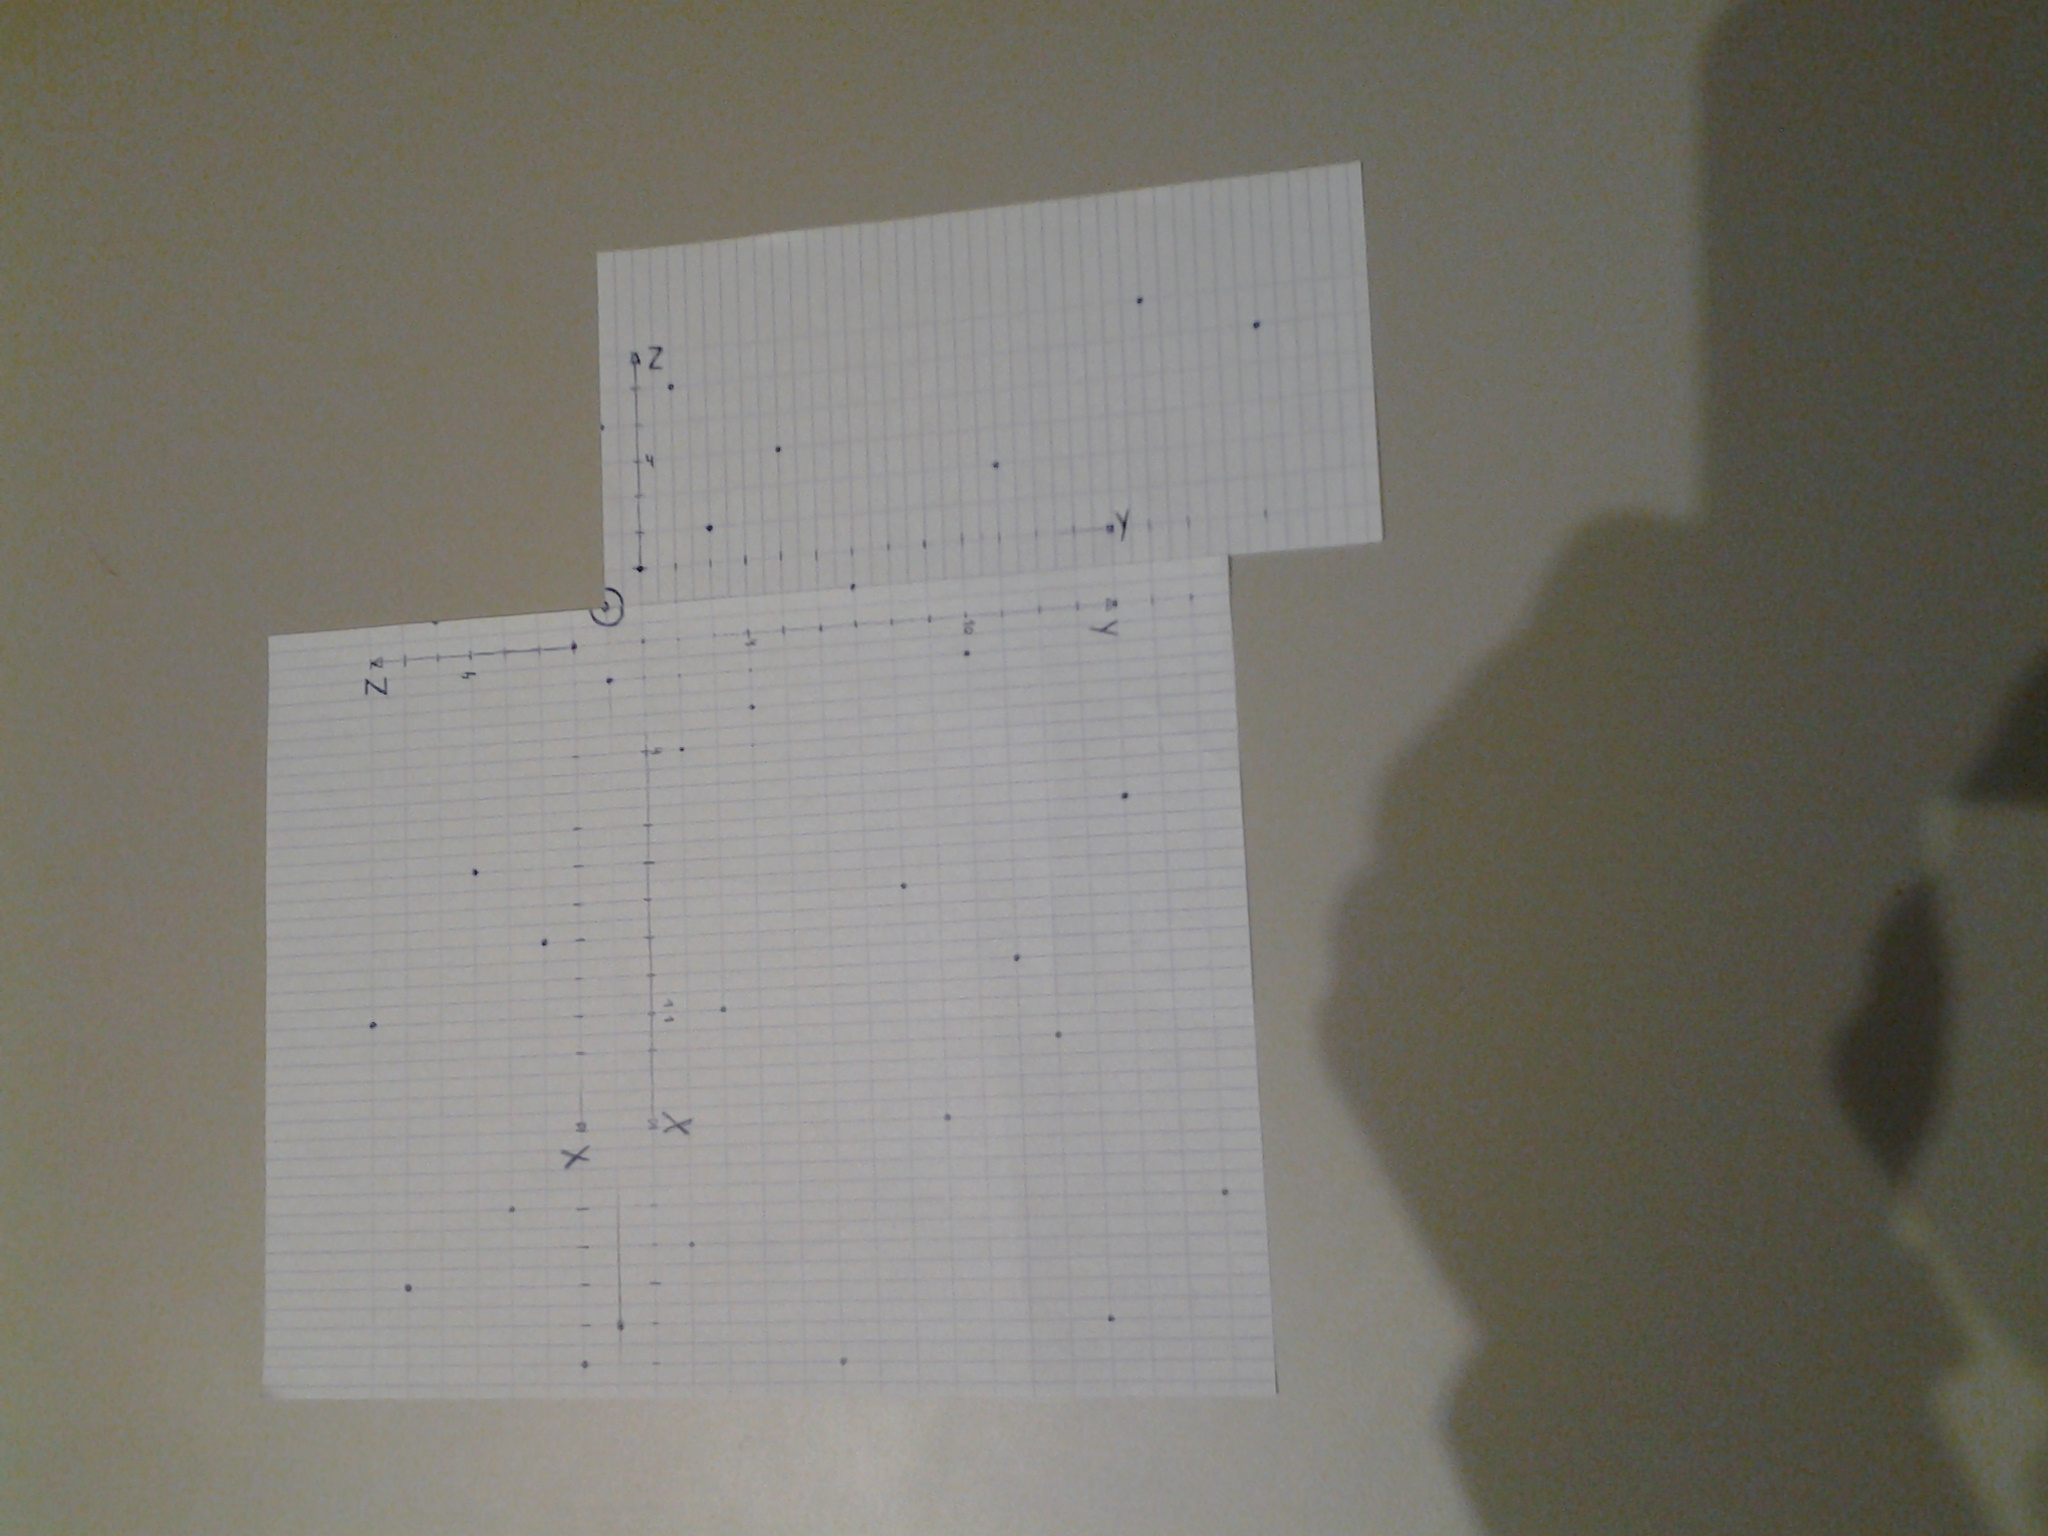 Z
Y
Z
4
4
10
Y
4
11
X
X